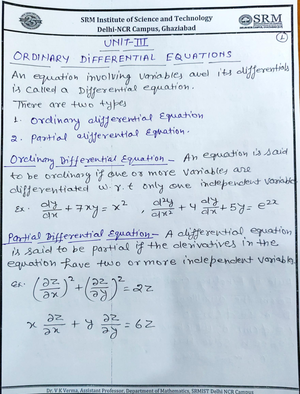 SRM Institute of Science and Technology
Delhi-NCR Campus, Ghaziabad
SRM
1
UNIT-III
ORDINARY DIFFERENTIAL EQUATIONS
An equation involving variables and its differentials
is called a Differential equation.
There are two types
1. Ordinary differential Equation
2. Partial differential Equation.
Ordinary Differential Equation – An equation is said
to be ordinary if one or more variables are
differentiated w.r.t only one independent variable
Ex. dy/dx + 7xy = x² d²y/dx² + 4 dy/dx + 5y = e^2x
Partial Differential Equation – A differential equation
is said to be partial if the derivatives in the
equation have two or more independent variables
ex. (∂z/∂x)² + (∂z/∂y)² = 2z
x ∂z/∂x + y ∂z/∂y = 6z
Dr. V K Verma, Assistant Professor, Department of Mathematics, SRMIST Delhi NCR Campus